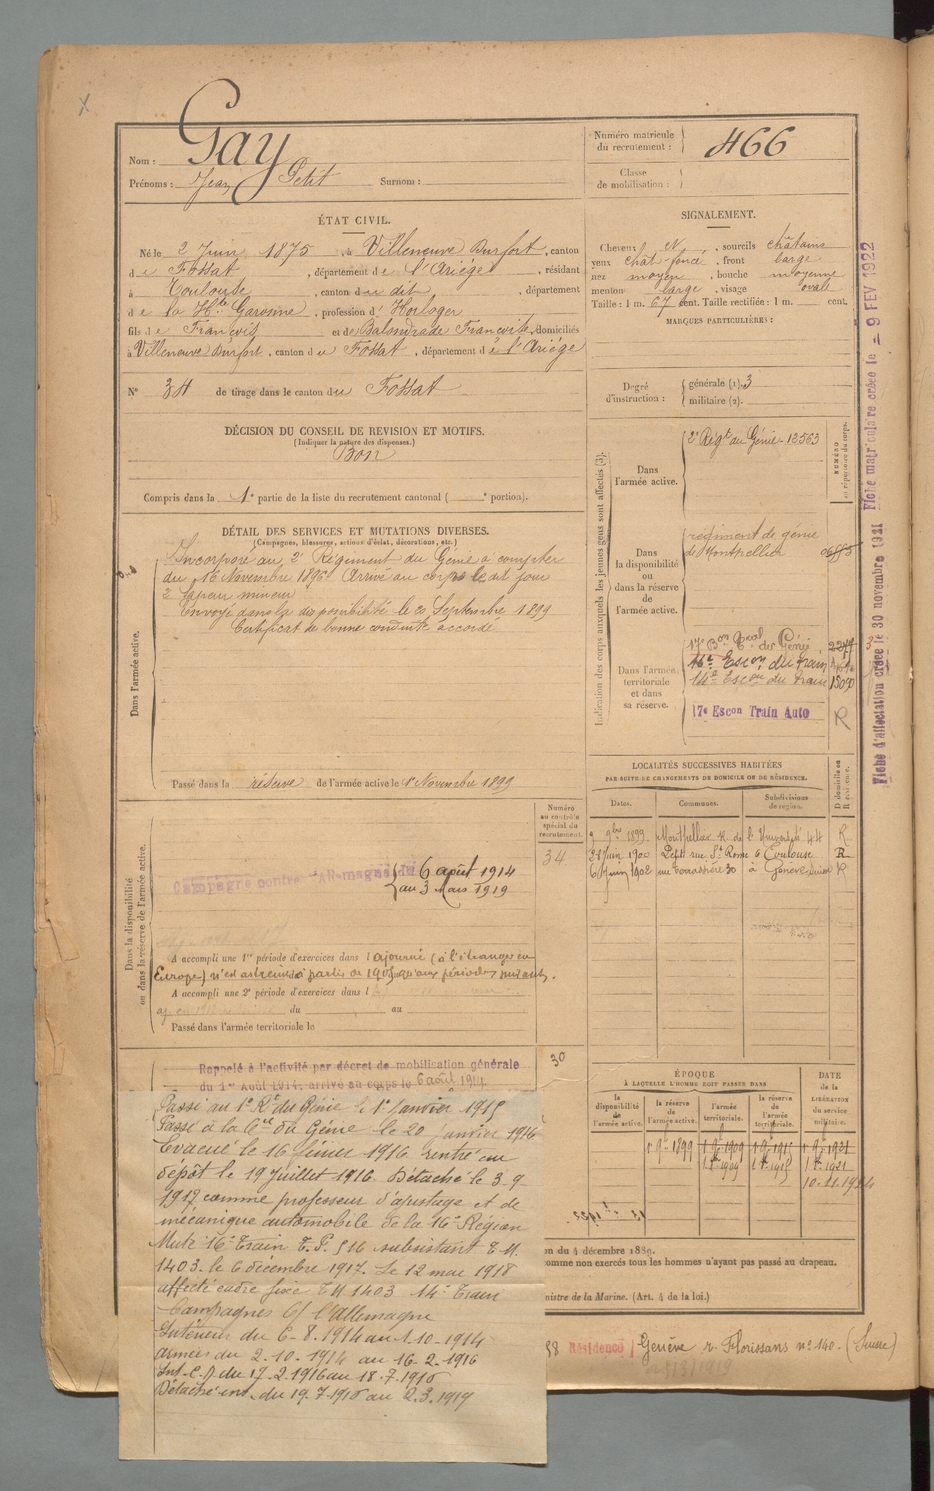 Nom : Gay
Prénoms : Jean Petit Surnom :
Numéro matricule
du recrutement : 466
Classe
de mobilisation :
ÉTAT CIVIL.
Né le 2 Juin 1875, à Villeneuve Durfort, canton
de Fossat, département de l'Ariège, résidant
à Toulouse, canton du dit, département
de la Hte Garonne, profession d'Horloger
fils de François et de Balondrade Françoise, domiciliés
à Villeneuve Durfort, canton du Fossat, département de l'Ariège
No 34 de tirage dans le canton du Fossat
DÉCISION DU CONSEIL DE REVISION ET MOTIFS.
(Indiquer la nature des dispenses.)
Bon
Compris dans la 1e partie de la liste du recrutement cantonal ( e portion).
SIGNALEMENT.
Cheveux , sourcils châtains
yeux chât foncé , front large
nez moyen , bouche moyenne
menton large , visage ovale
Taille : 1 m. 67 cent. Taille rectifiée : 1 m. cent.
MARQUES PARTICULIÈRES :
Degré
d'instruction :
générale (1). 3
militaire (2).
DÉTAIL DES SERVICES ET MUTATIONS DIVERSES.
(Campagnes, blessures, actions d'éclat, décorations, etc.)
Dans l'armée active.
Incorporé au 2e Régiment du Génie à compter
du 16 Novembre 1896. Arrivé au corps le dit jour
2e Sapeur mineur
Envoyé dans la disponibilité le 20 Septembre 1899
Certificat de bonne conduite accordé
Passé dans la réserve de l'armée active le 1er Novembre 1899
Indication des corps auxquels les jeunes gens sont affectés (3).
NUMÉRO
au répertoire du corps.
Dans
l'armée active.
2e Régt du Génie - 12563
Dans
la disponibilité
ou
dans la réserve
de
l'armée active.
régiment de génie
de Montpellier
Dans l'armée
territoriale
et dans
sa réserve.
17e Bon Tal du Génie
16e Escon du Train
14e Escon du Train
17e Escon Train Auto R
Fiche d'affectation créée le 30 novembre 1921 Fiche matriculaire créée le - 9 FEV 1922
LOCALITÉS SUCCESSIVES HABITÉES
PAR SUITE DE CHANGEMENTS DE DOMICILE OU DE RÉSIDENCE.
Dates. Communes. Subdivisions
de région. D domicile ou
R résidence.
9 9bre 1899 Montpellier R. de l'Université 44 R
Juin 1900 rue St Rome 6 Toulouse R
6 Juin 1902 rue Terrassière 30 à Genève Suisse R
Dans la disponibilité
ou dans la réserve de l'armée active.
Numéro
au contrôle
spécial du
recrutement.
34
Campagne contre l'Allemagne du 6 août 1914
au 3 Mars 1919
A accompli une 1re période d'exercices dans l ajourné (à l'étranger en
Europe) n'est astreint à partir de 1905 qu'aux périodes suivant
A accompli une 2e période d'exercices dans l
du au
Passé dans l'armée territoriale le
30
Rappelé à l'activité par décret de mobilisation générale
du 1er Août 1914, arrivé au corps le 6 août 1914.
Passé au 1e Rt du Génie le 1er Janvier 1915
Passé à la Cie du Génie le 20 Janvier 1916
Evacué le 16 février 1916 rentré au
dépôt le 19 Juillet 1916. Détaché le 3-9
1917 comme professeur d'ajustage et de
mécanique automobile de la 16e Région
Muté 16e Train T.P. 516 subsistant T.M.
1403. le 6 décembre 1917. Le 12 mai 1918
affecté cadre fixe T M 1403 14e Train
Campagnes C/ l'Allemagne
Intérieur du 6-8-1914 au 1-10-1914
armées du 2-10-1914 au 16-2-1916
Int. du 17-2-1916 au 18-7-1916
Détaché int. du 19-7-1916 au 2.3.1919
ÉPOQUE
À LAQUELLE L'HOMME DOIT PASSER DANS
la
disponibilité
de
l'armée active.
la réserve
de
l'armée active.
l'armée
territoriale.
la réserve
de
l'armée
territoriale.
DATE
de la
LIBÉRATION
du service
militaire.
1er 9bre 1899 1er 9bre 1909 1er 9bre 1915 1er 9bre 1921
on du 4 décembre 1889.
comme non exercés tous les hommes n'ayant pas passé au drapeau.
nistre de la Marine. (Art. 4 de la loi.)
88 Résidence Genève r. Florissans no 140. (Suisse)